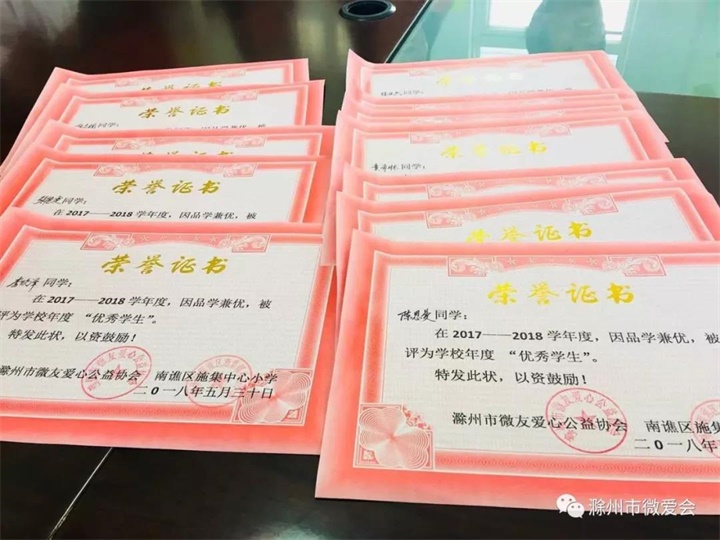 荣誉证书
同学：
荣誉证书
同学：
在2017——2018学年度，因品学兼优，被
荣誉证书
同学：
在2017——2018学年度，因品学兼优，被
评为学校年度“优秀学生”。
特发此状，以资鼓励！
滁州市微友爱心公益协会 南谯区施集中心小学
二〇一八年五月三十日
同学：
荣誉证书
同学：
荣誉证书
荣誉证书
陈思曼同学：
在2017——2018学年度，因品学兼优，被
评为学校年度“优秀学生”。
特发此状，以资鼓励！
滁州市微友爱心公益协会 南谯区施集
二〇一八
滁州市微爱会